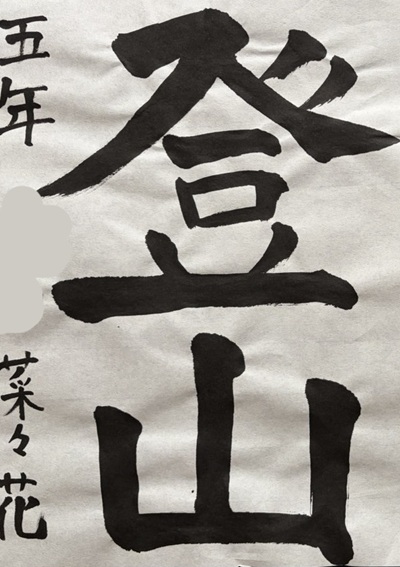 登山
五年
菜々花